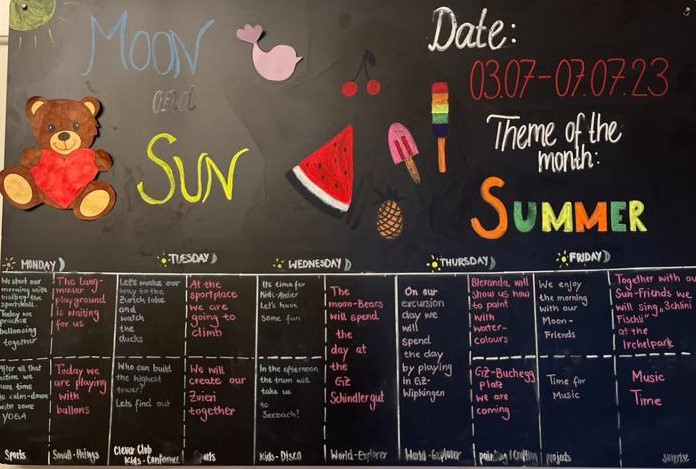 MOON
and
SUN
Date:
03.07-07.07.23
Theme of the
month:
SUMMER
MONDAY
TUESDAY
WEDNESDAY
THURSDAY
FRIDAY
We start our
morning with
visiting the
sportshall.
Today we
practise
ballancing
together
The Lang-
mauer
playground
is waiting
for us
Let's make our
way to the
Zurich lake
and
watch
the
ducks
At the
sportplace
we are
going to
climb
Its time for
Kids-Atelier
Let's have
some fun
The
moon-Bears
will spend
the
day at
the
GZ
Schindlergut
On our
excursion
day we
will
spend
the day
by playing
in GZ-
Wipkingen
Bleranda will
show us how
to paint
with
water-
colours
We enjoy
the morning
with our
Moon-
Friends
Together with our
Sun-Friends we
will sing "3chlini
Fischli"
at the
Irchelpark
After all that
action we
have time
to calm-down
with some
YOGA
Today we
are playing
with
ballons
Who can build
the highest
tower?
Lets find out
We will
create our
Zvieri
together
In the afternoon
the tram will
take us
to
Seebach!
GZ-Buchegg
platz
we are
coming
Time for
Music
Music
Time
Sports
Small-things
Clever Club
Kids-Conference
Sports
Kids-Disco
World-Explorer
World-Explorer
painting/Crafting
projects
surprise